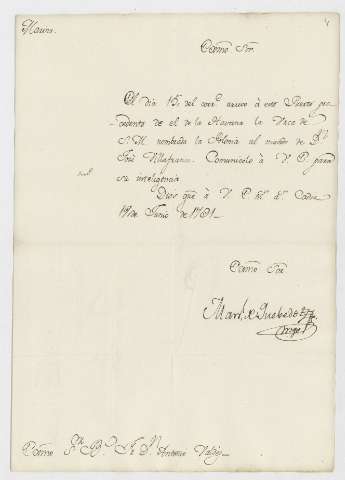 Marina.
Exmo Sor
El dia 15 del corrte arrivo à este Puerto pro-
cedente de el de la Havana la Urca de
S. M. nombrada la Polonia al mando de Dn
José Villafranca. Comunícolo à V. E. para
su inteligencia
Dios gue à V. E. ms as Cadiz
19 de Junio de 1781
Exmo Sor
Exmo Sr Bo Fr Dn Antonio Valdés